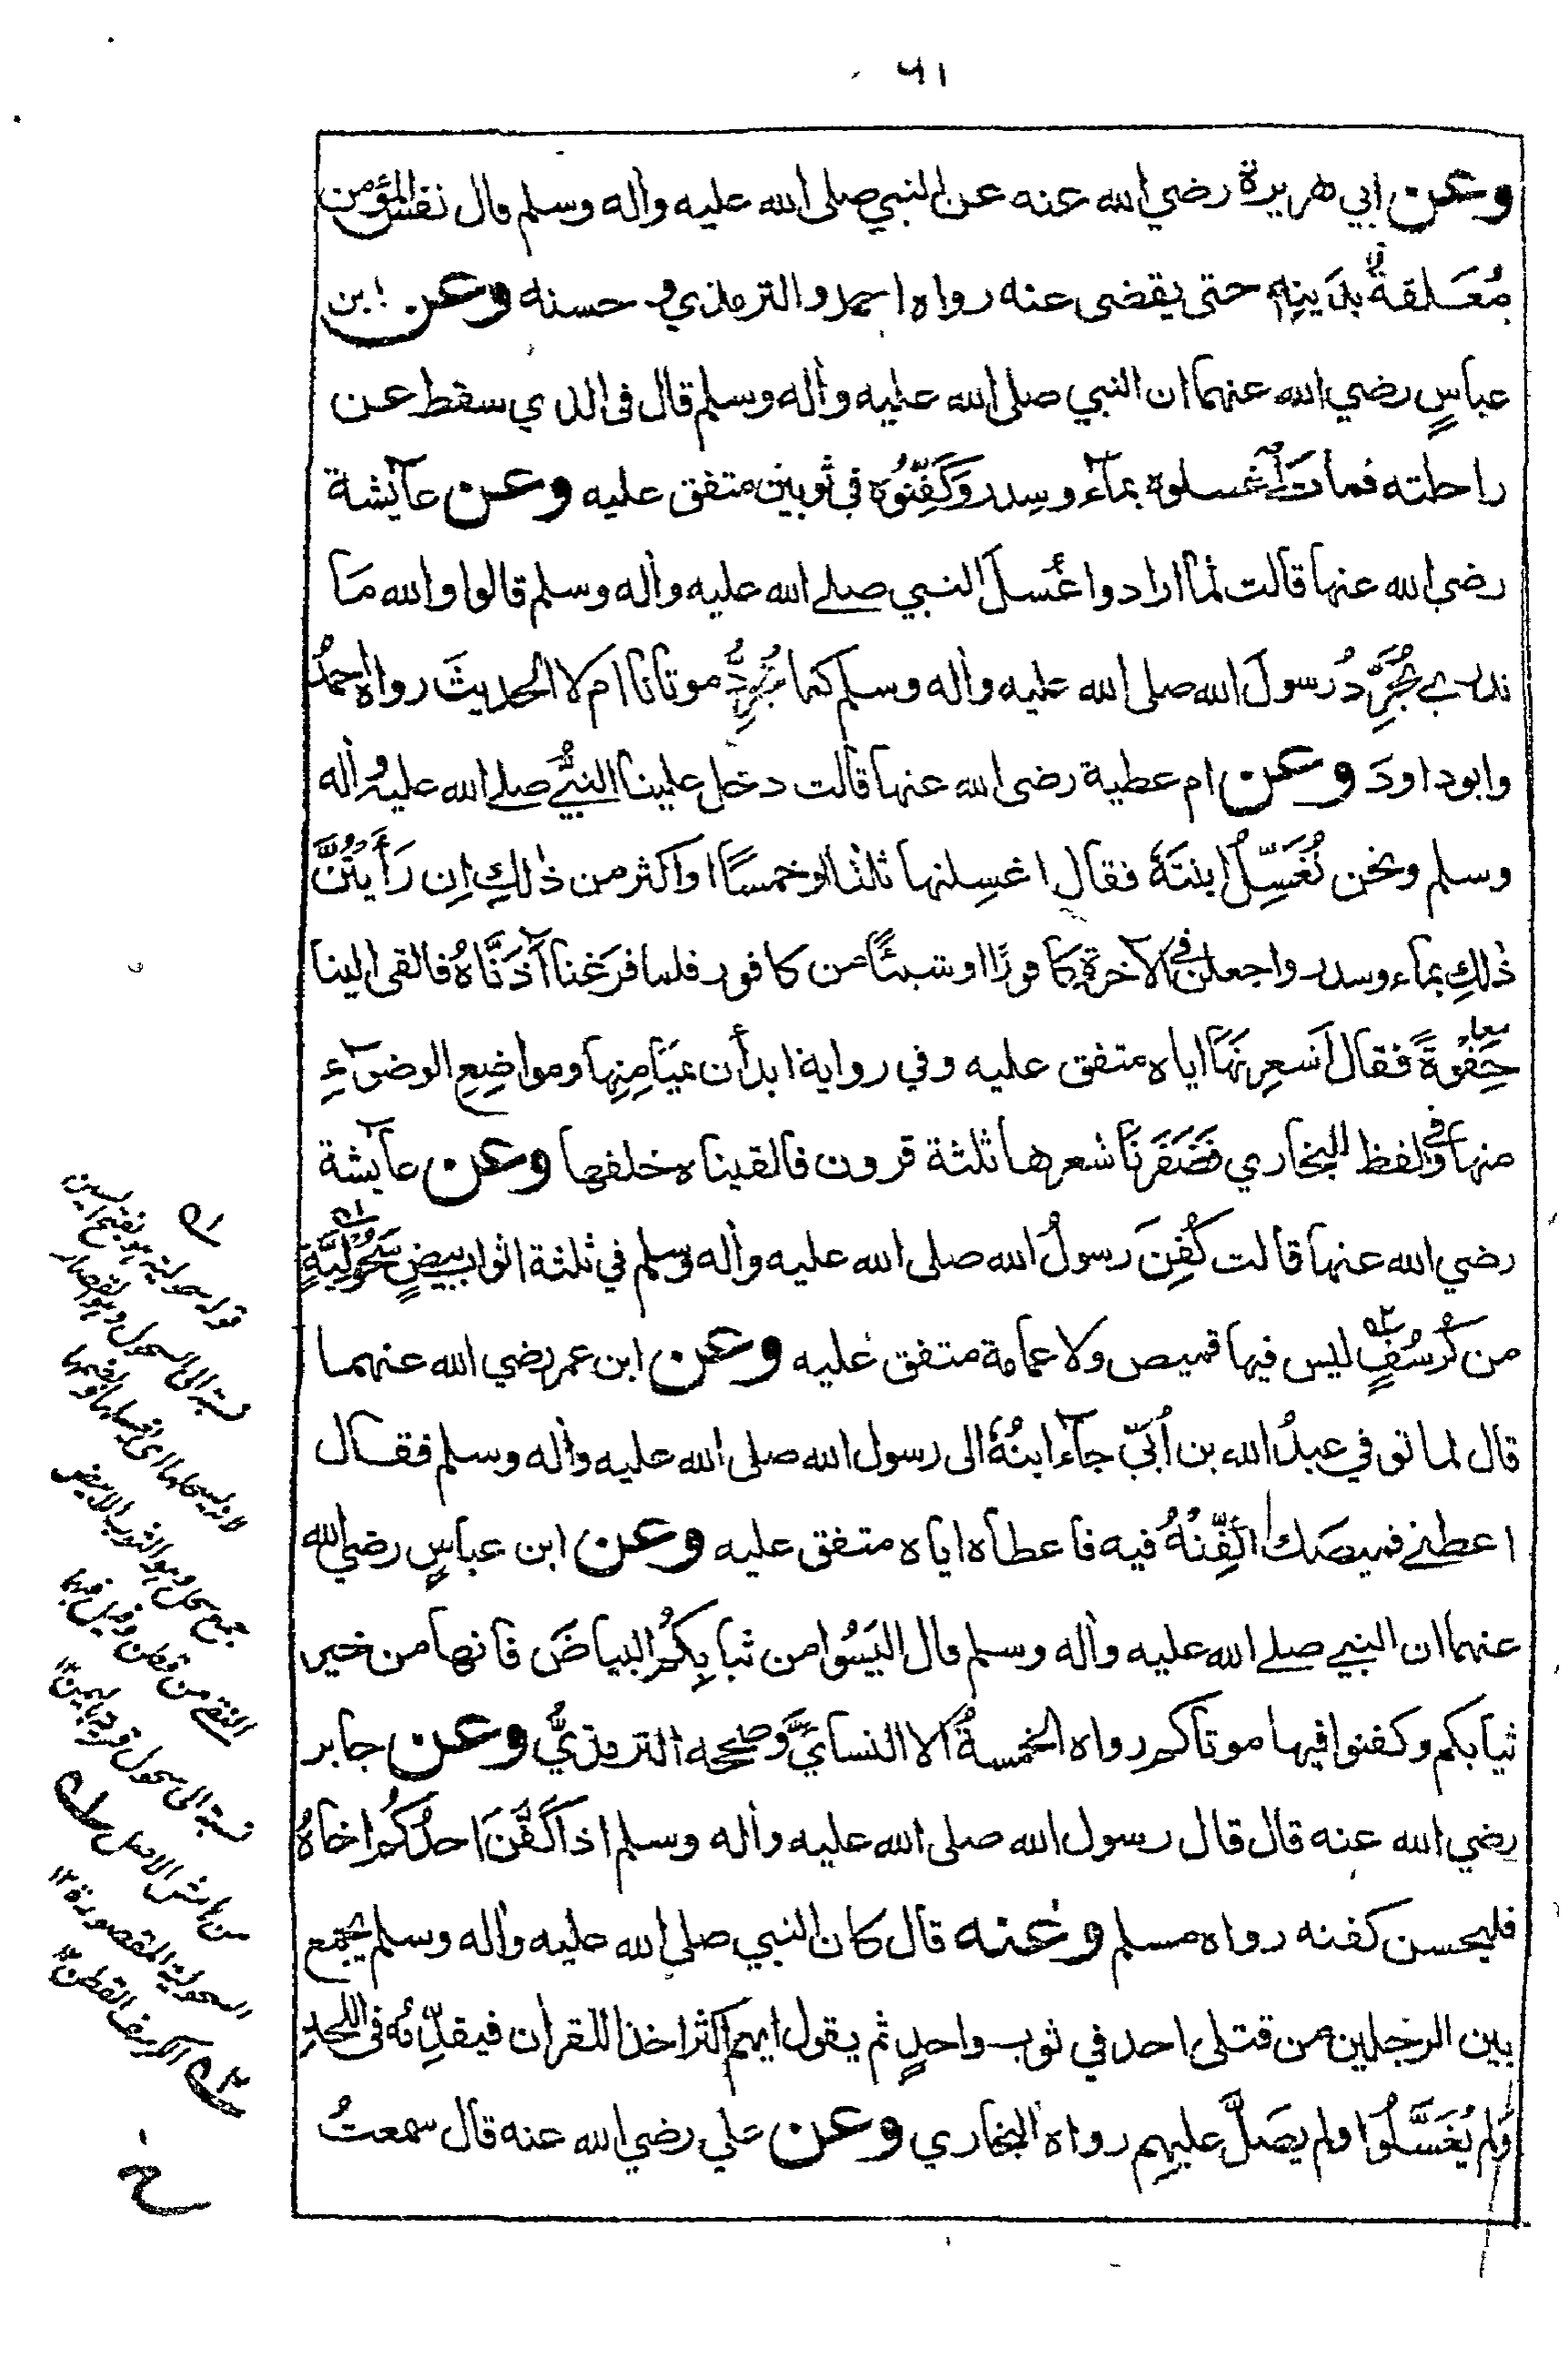 ٦١
وعن ابي هريرة رضي الله عنه عن النبي صلى الله عليه واٰله وسلم قال نفس المؤمن
مُعَلقة بدَينِه حتى يقضى عنه رواه احمد والترمذي وحسنه وعن ابن
عباسٍ رضي الله عنهما ان النبي صلى الله عليه واٰله وسلم قال فى الذي سقط عن
راحلته فمات اغسلوه بمآء وسِدر وَكَفِّنُوه في ثوبين متفق عليه وعن عآيشة
رضي الله عنها قالت لما ارادوا غُسلَ النبي صلے الله عليه واٰله وسلم قالوا والله مَا
ندرے نُجَرِّدُ رسولَ الله صلى الله عليه واٰله وسلم كما نُجَرِّدُ موتانا ام لا الحديثَ رواه احمدُ
وابوداودَ وعن ام عطية رضى الله عنها قالت دخل علينا النبيُّ صلے الله عليه واٰله
وسلم ونحن نُغَسِّلُ ابنتَهٗ فقال اغسِلنها ثلثا او خمسًا او اكثر من ذٰلكِ اِن رَأَيتُنَّ
ذٰلكِ بمآء وسدر واجعلن فى الآخرةِ كافورًا او شيئًا من كافور فلما فرَغنا آذَنَّاهُ فالقى الينا
حِقوهٗ فقال اَشعِرنَهَا اياه متفق عليه وفي رواية ابدأن بمَيَامِنِها ومواضِعِ الوضوٓءِ
منها وفى لفظ البخاري فضَفَرنَا شعرها ثلثة قرون فالقيناه خلفها وعن عآيشة
رضي الله عنها قالت كُفِنَ رسولُ الله صلى الله عليه واٰله وسلم في ثلثة اثواب بيضٍ سَحُولِيَّةٍ
من كُرسُفٍ ليس فيها قميص ولا عمامة متفق عليه وعن ابن عمر رضي الله عنهما
قال لما توفي عبدُ الله بن اُبَيّ جآء ابنُهٗ الى رسول الله صلى الله عليه واٰله وسلم فقال
اعطنے قميصَك اُكَفِّنْهُ فيه فاعطاه اياه متفق عليه وعن ابن عباسٍ رضي الله
عنهما ان النبي صلے الله عليه واٰله وسلم قال البَسُوا من ثيابِكُم البياضَ فانها من خير
ثيابكم وكفنوا فيها موتاكم رواه الخمسةُ الا النسايَّ وصححه الترمذيُّ وعن جابر
رضي الله عنه قال قال رسول الله صلى الله عليه واٰله وسلم اذا كَفَّنَ احدُكُم اخاهُ
فليحسن كفنه رواه مسلم وعنه قال كان النبي صلى الله عليه واٰله وسلم يجمع
بين الرجلين من قتلى احد في ثوب واحدٍ ثم يقول ايهم اكثر اخذا للقران فيقدِّمُه فى اللحدِ
ولم يُغَسَّلُوا ولم يصَلَّ عليهم رواه البخاري وعن علي رضي الله عنه قال سمعتُ
قوله سحولية هو بفتح السين
نسبة الى السحول وهو القصار
لانه يسحلها اى يغسلها
جمع سحل وهو الثوب الابيض
النقے من قطن وقيل
نسبة الى سحول قرية باليمن
من هامش الاصل
السحولية المقصورة ١٢
الكرسف القطن